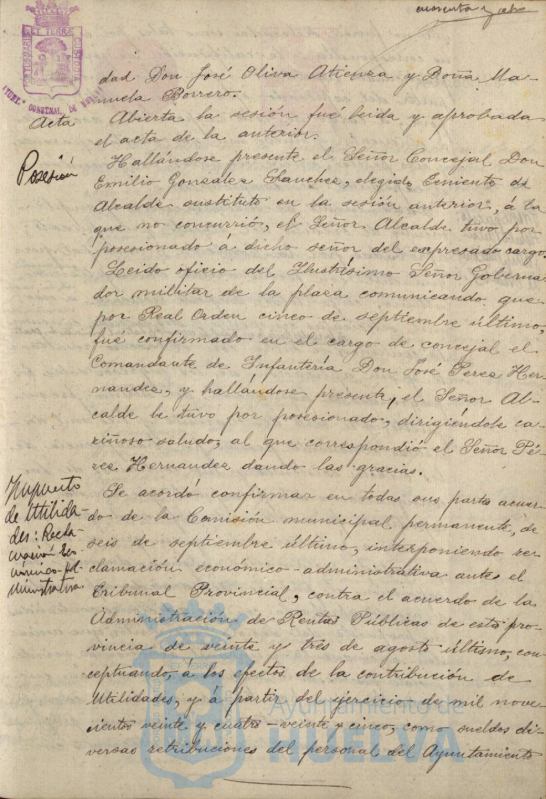 cuarenta y ocho
dad Don José Oliva Atienza y Doña Ma-
nuela Borrero.
Acta
Abierta la sesión fué leida y aprobada
el acta de la anterior.
Posesión
Hallándose presente el Señor Concejal Don
Emilio Gonzalez Sanchez, elegido Teniente de
Alcalde sustituto en la sesión anterior, á la
que no concurrió, el Señor Alcalde tuvo por
posesionado a dicho señor del expresado cargo.
Leido oficio del Ilustrísimo Señor Goberna-
dor militar de la plaza comunicando que
por Real Orden cinco de septiembre último,
fué confirmado en el cargo de concejal el
Comandante de Infantería Don José Perez Her-
nandez, y hallándose presente, el Señor Al-
calde le tuvo por posesionado, dirigiéndole ca-
riñoso saludo, al que correspondió el Señor Pé-
rez Hernandez dando las gracias.
Impuesto
de Utilida-
des: Recla-
mación Eco-
nómico-ad-
ministrativa
Se acordó confirmar en todas sus partes acuer-
do de la Comisión municipal permanente, de
seis de septiembre último, interponiendo re-
clamación económico-administrativa antes el
Tribunal Provincial, contra el acuerdo de la
Administración de Rentas Públicas de esta pro-
vincia de veinte y tres de agosto último, con-
ceptuando, á los efectos de la contribución de
Utilidades, y á partir del ejercicio de mil nove-
cientos veinte y cuatro-veinte y cinco, como sueldos di-
versas retribuciones del personal del Ayuntamiento
Ayuntamiento de
HUELVA